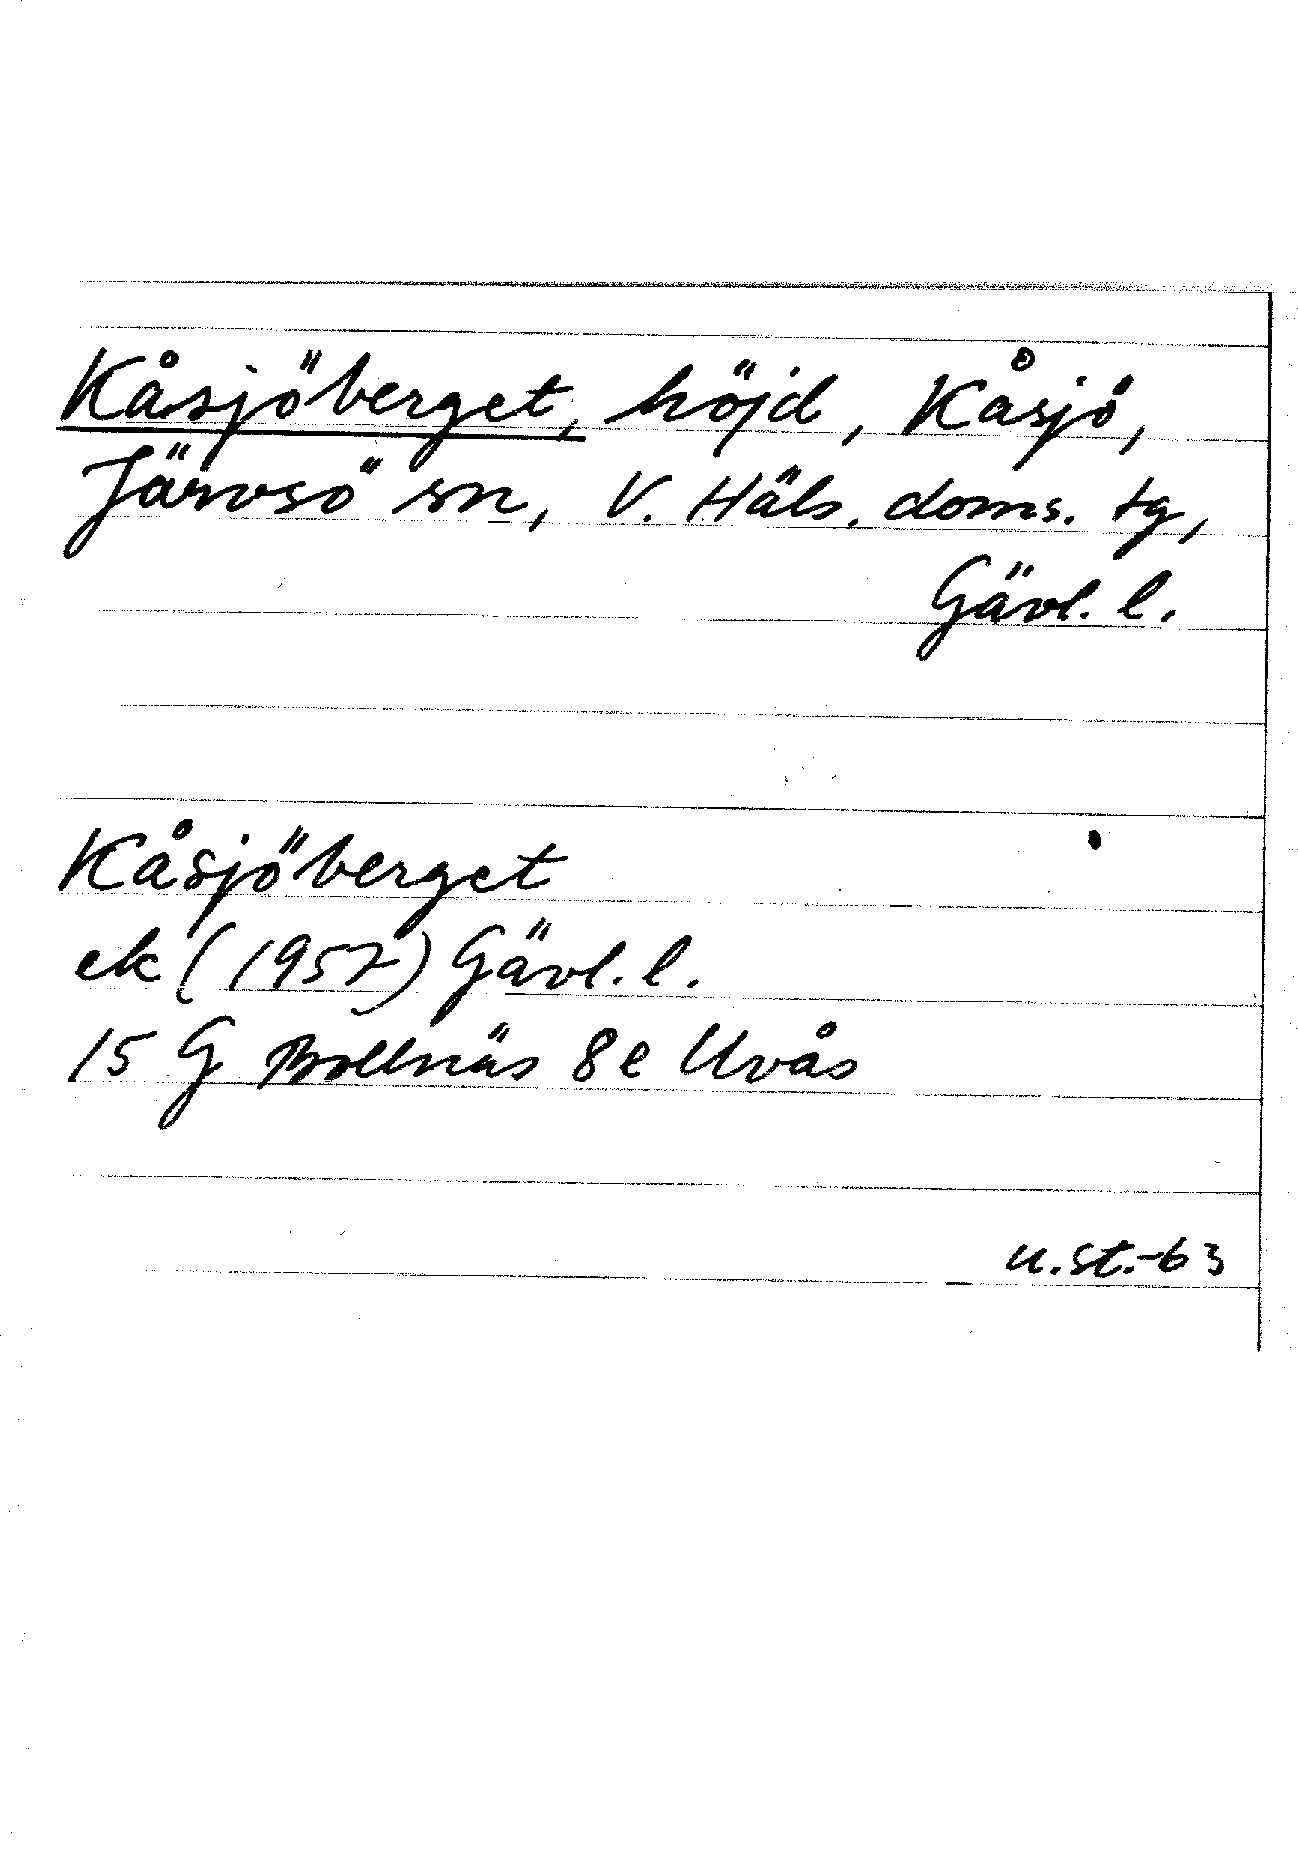 Kåsjöberget, höjd, Kåsjö,
Järvsö sn, V. Häls. doms. tg,
Gävl. l.
Kåsjöberget
ek (1957) Gävl. l.
15 G Bollnäs 8e Uvås
u.st.-63